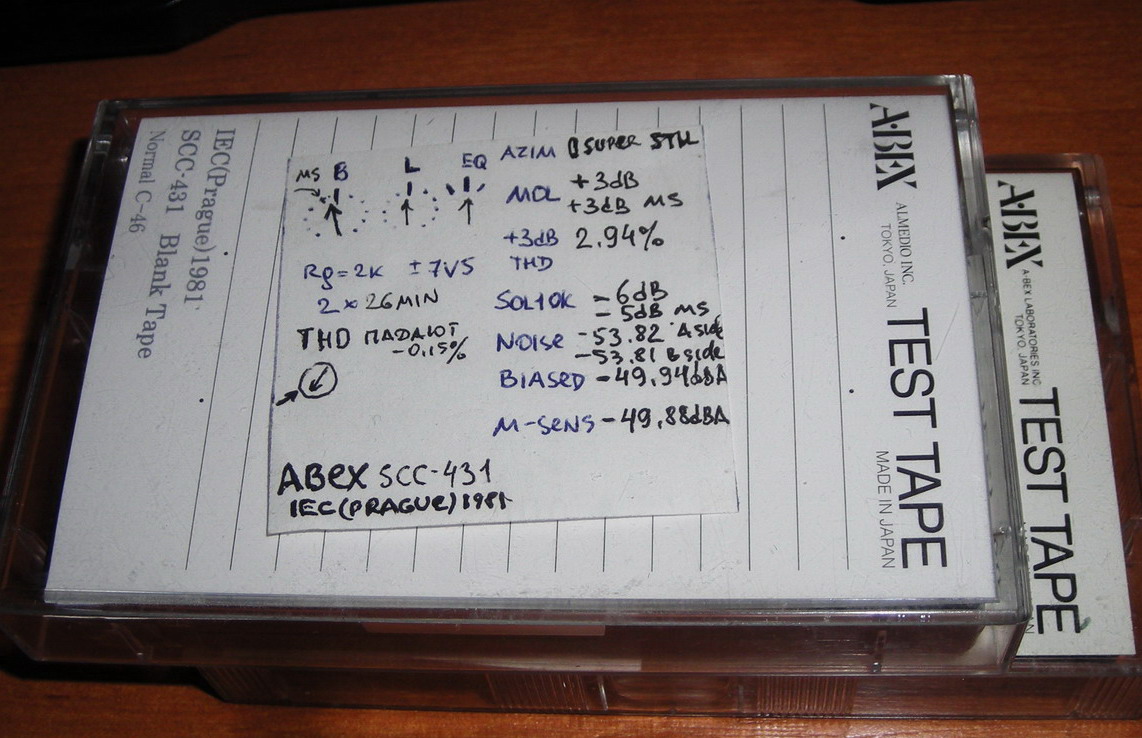 IEC(Prague)1981
SCC-431 Blank Tape
Normal C-46
MS B L EQ
Rg=2K ±7V5
2 × 26MIN
THD ПАДАЮТ
-0.15%
ABEX SCC-431
IEC(PRAGUE)1981
AZIM SUPER
MOL +3dB
+3dB MS
+3dB 2.94%
THD
SOL10K -6dB
-5dB MS
NOISE -53.82 A side
-53.81 B side
BIASED -49,94dBA
M-SENS -49,88dBA
ABEX
ALMEDIO INC.
TOKYO, JAPAN
TEST TAPE
MADE IN JAPAN
ABEX
A·BEX LABORATORIES INC.
TOKYO, JAPAN
TEST TAPE